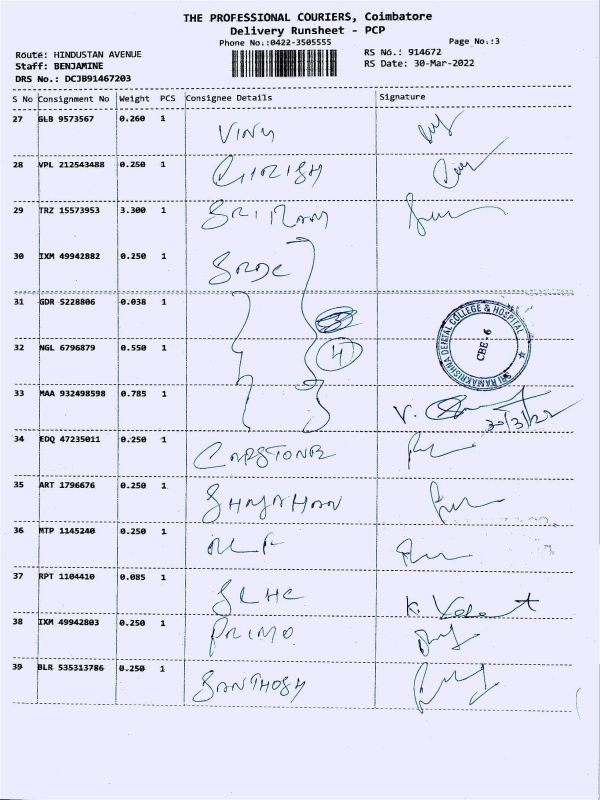 THE PROFESSIONAL COURIERS, Coimbatore
Delivery Runsheet - PCP
Phone No.:0422-3505555
Page No.:3
Route: HINDUSTAN AVENUE
RS No.: 914672
Staff: BENJAMINE
RS Date: 30-Mar-2022
DRS No.: DCJB91467203
S No Consignment No Weight PCS Consignee Details Signature
27 GLB 9573567 0.260 1 VINU
28 VPL 212543488 0.250 1 GIRISH
29 TRZ 15573953 3.300 1 SRIRAM
30 IXM 49942882 0.250 1 SRDC
31 GDR 5228806 0.038 1
32 NGL 6796879 0.550 1 4
SRI RAMAKRISHNA DENTAL COLLEGE & HOSPITAL
CBE-6
33 MAA 932498598 0.785 1 V.
30/3/22
34 EDQ 47235011 0.250 1 CAPSTONE
35 ART 1796676 0.250 1 SHAJAHAN
36 MTP 1145240 0.250 1
37 RPT 1104410 0.085 1 K.
38 IXM 49942803 0.250 1 PRIMO
39 BLR 535313786 0.250 1 SANTHOSH